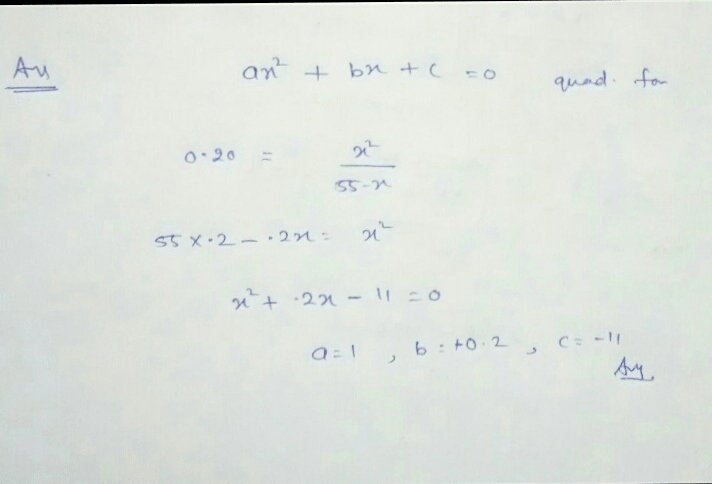 Ans ax² + bx + c = 0 quad. for
0.20 = x² / 55-x
55 x .2 - .2x = x²
x² + .2x - 11 = 0
a=1 , b = +0.2 , c = -11
Ans